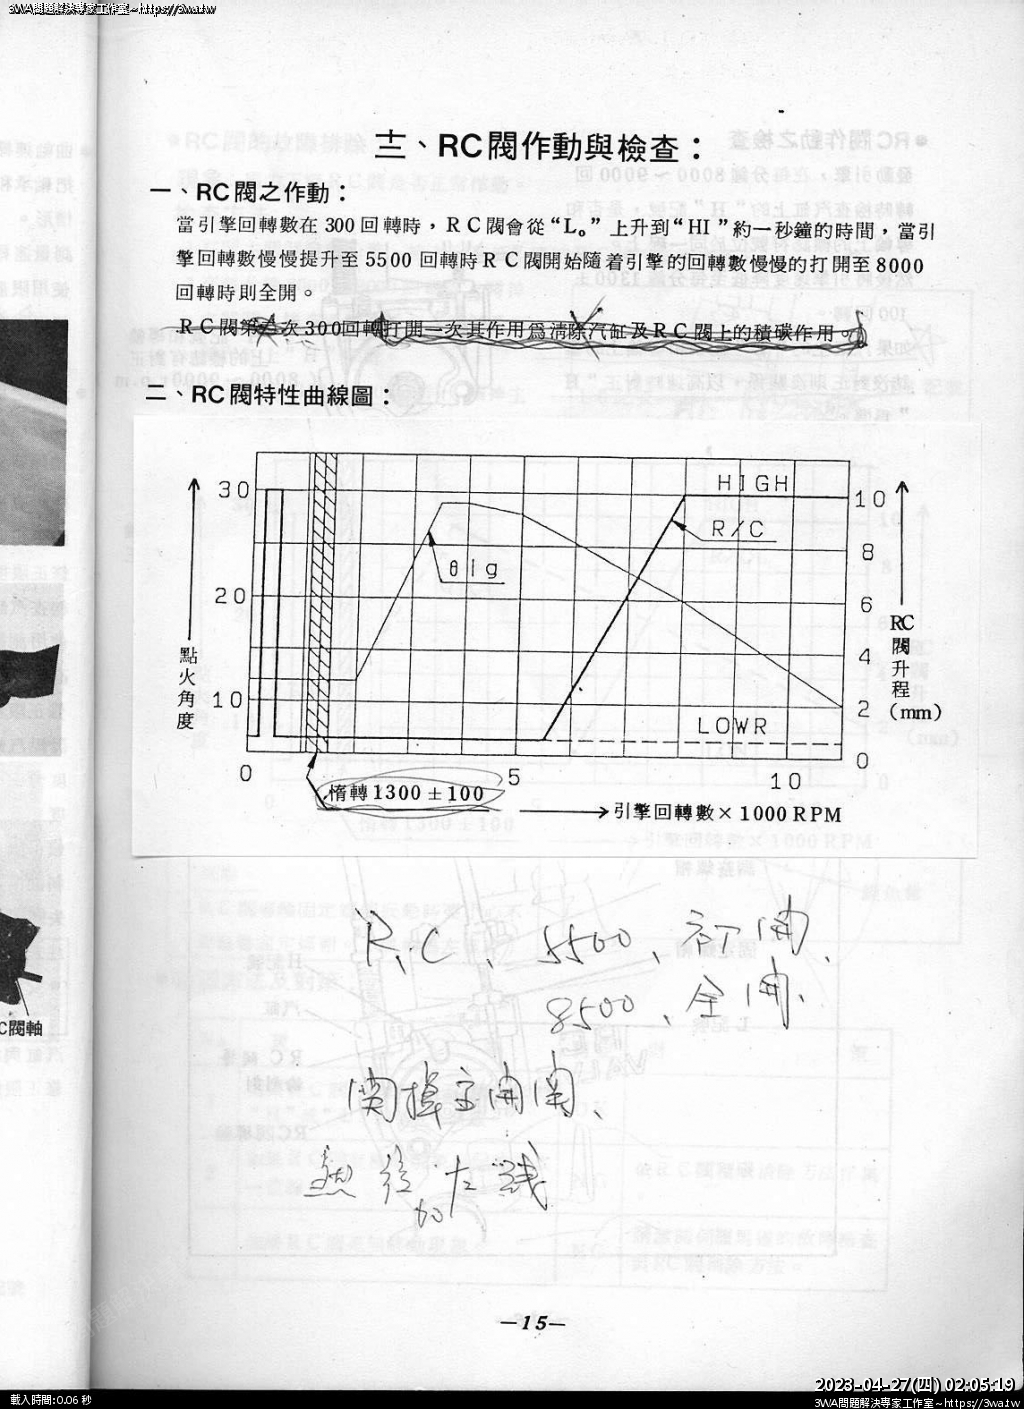 3WA問題解決專家工作室~https://3wa.tw
三、RC閥作動與檢查：
一、RC閥之作動：
當引擎回轉數在300回轉時，RC閥會從“L。”上升到“HI”約一秒鐘的時間，當引
擎回轉數慢慢提升至5500回轉時RC閥開始隨着引擎的回轉數慢慢的打開至8000
回轉時則全開。
次300回轉打開一次其作用爲清除汽缸及RC閥上的積碳作用。
二、RC閥特性曲線圖：
HIGH
30
10
R/C
8
θIg
20
6
RC閥升程(mm)
點火角度
4
10
2
LOWR
0
0
5
10
惰轉1300±100
引擎回轉數×1000RPM
R.C、5500、初開、
8500、全開、
關掉主開關、
C閥軸
—15—
2023-04-27(四) 02:05:19
載入時間:0.06 秒
3WA問題解決專家工作室~https://3wa.tw